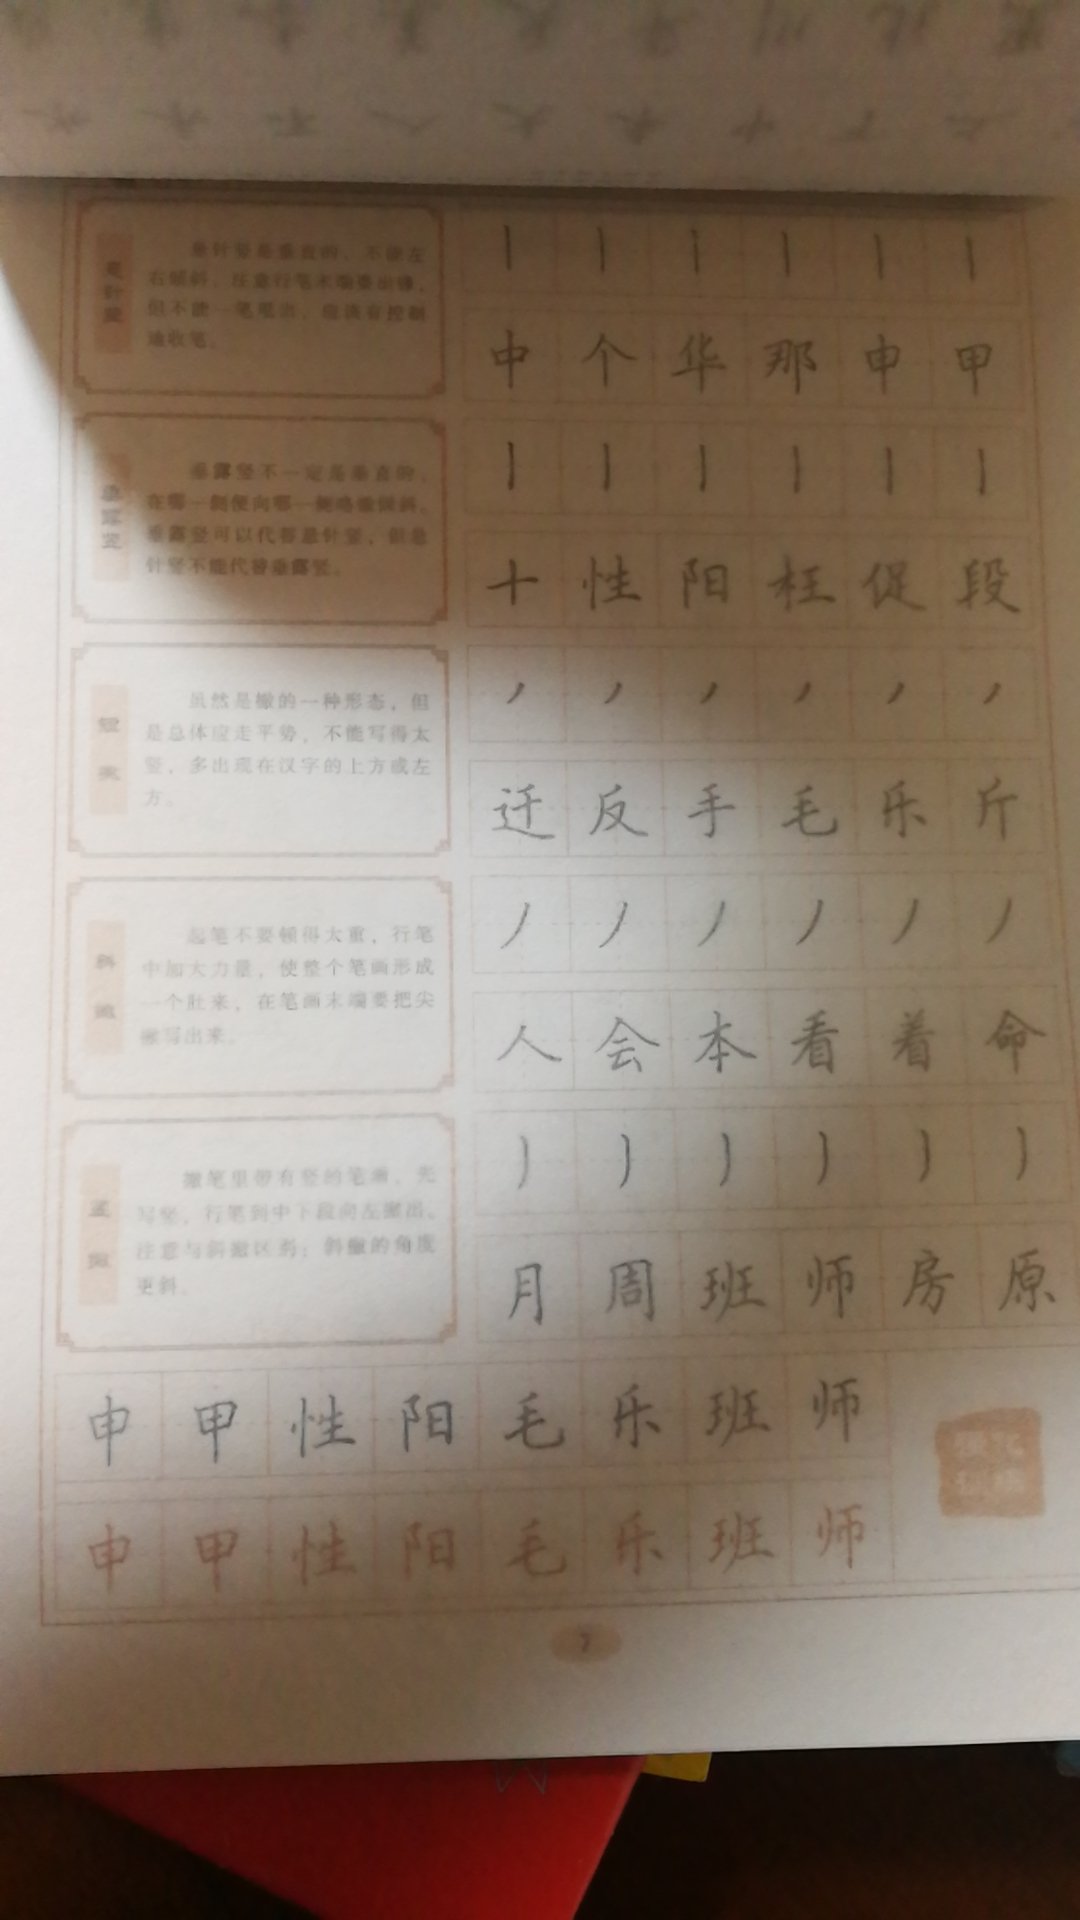 悬针竖
悬针竖是垂直的，不能左
右倾斜，注意行笔末端要出锋，
但不能一笔甩出，应该有控制
地收笔。
丨 丨 丨 丨 丨 丨
中 个 华 那 申 甲
垂露竖
垂露竖不一定是垂直的，
在哪一侧便向哪一侧略微倾斜。
垂露竖可以代替悬针竖，但悬
针竖不能代替垂露竖。
丨 丨 丨 丨 丨 丨
十 性 阳 枉 促 段
短撇
虽然是撇的一种形态，但
是总体应走平势，不能写得太
竖，多出现在汉字的上方或左
方。
丿 丿 丿 丿 丿 丿
迁 反 手 毛 乐 斤
斜撇
起笔不要顿得太重，行笔
中加大力量，使整个笔画形成
一个肚来，在笔画末端要把尖
撇写出来。
丿 丿 丿 丿 丿 丿
人 会 本 看 着 命
竖撇
撇笔里带有竖的笔画，先
写竖，行笔到中下段向左撇出。
注意与斜撇区别：斜撇的角度
更斜。
丿 丿 丿 丿 丿 丿
月 周 班 师 房 原
申 甲 性 阳 毛 乐 班 师
申 甲 性 阳 毛 乐 班 师
7